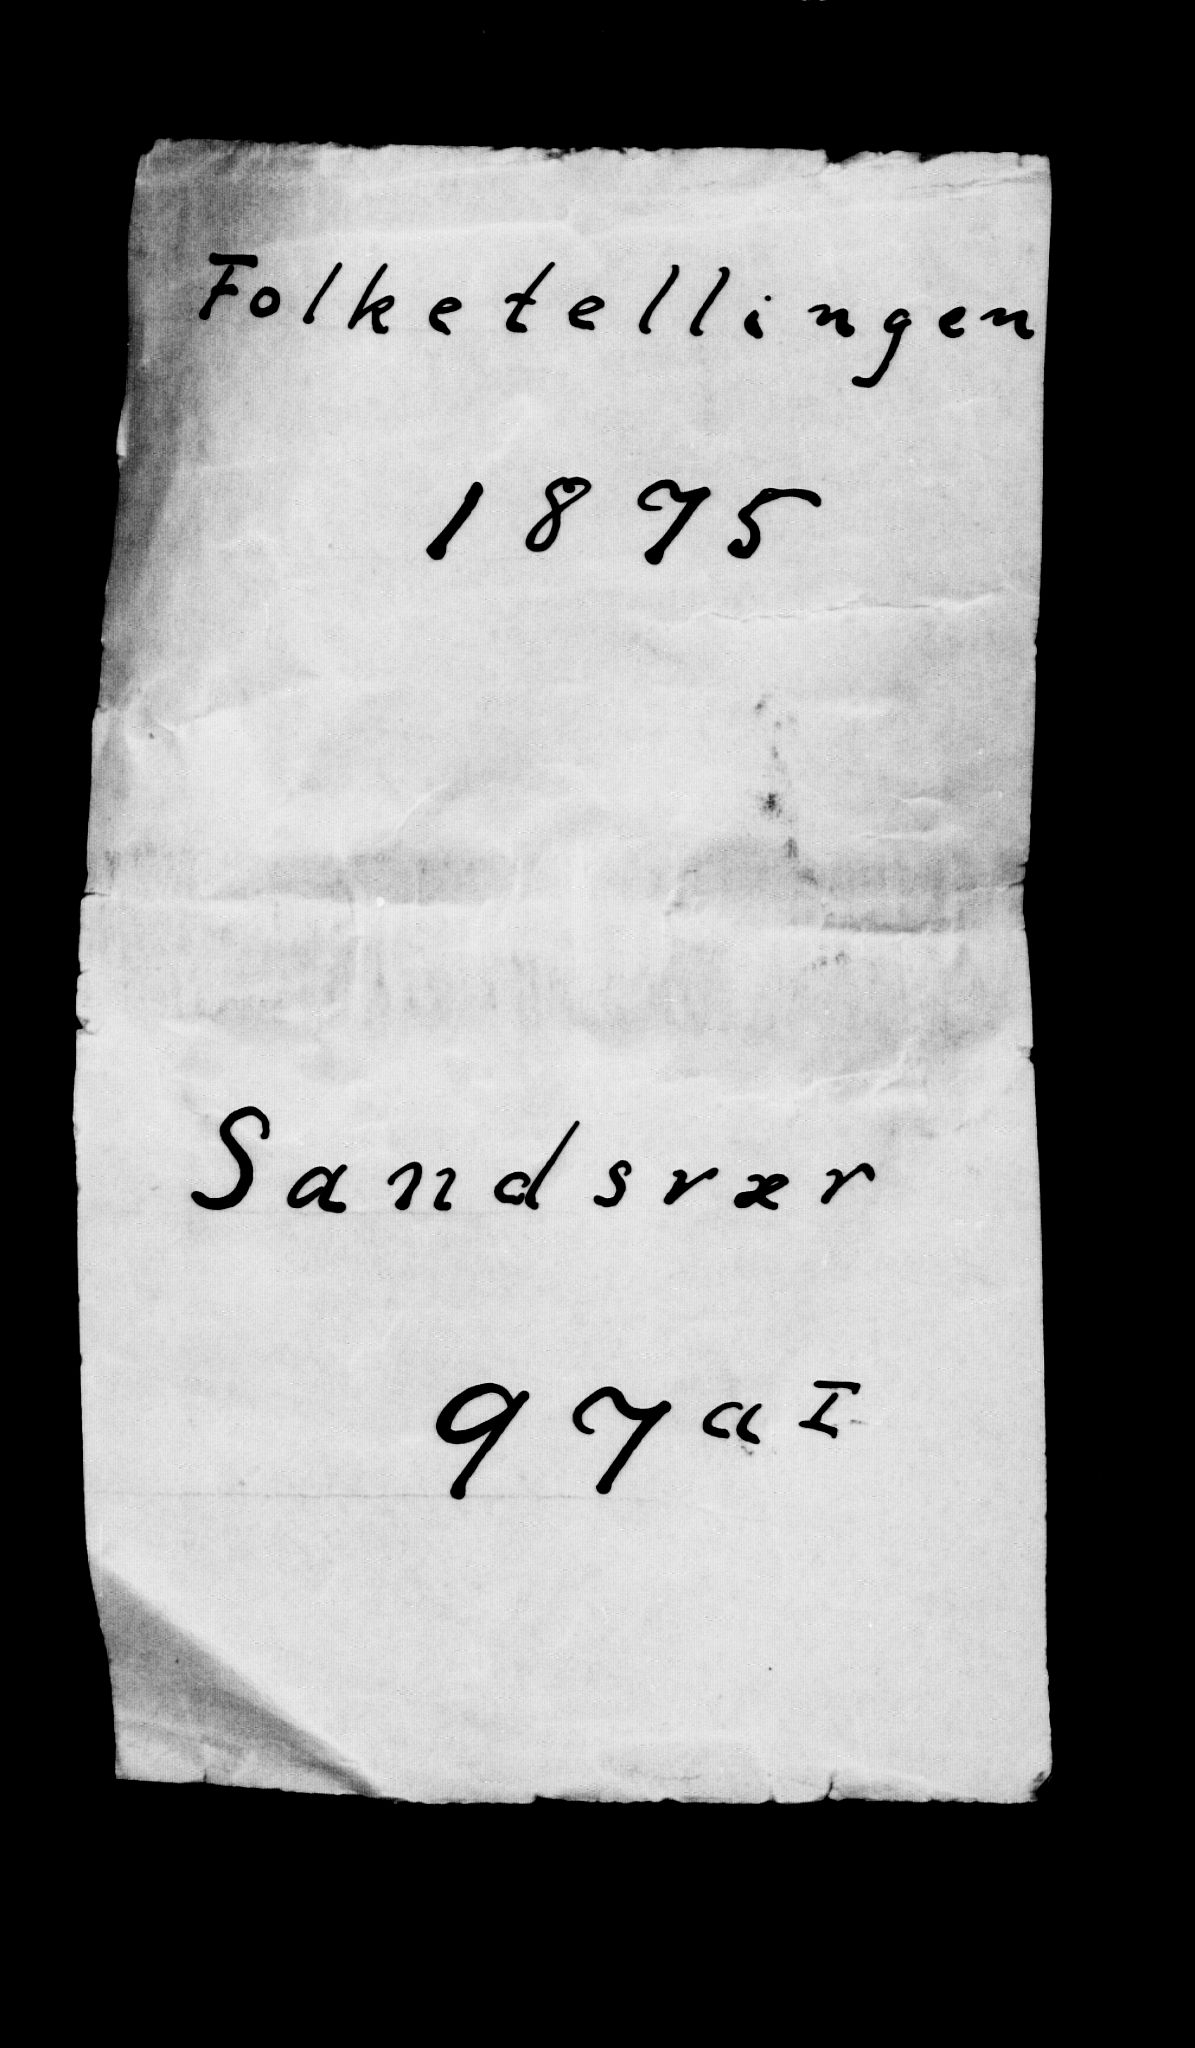 Folketellingen
1875
Sandsvær
97a I